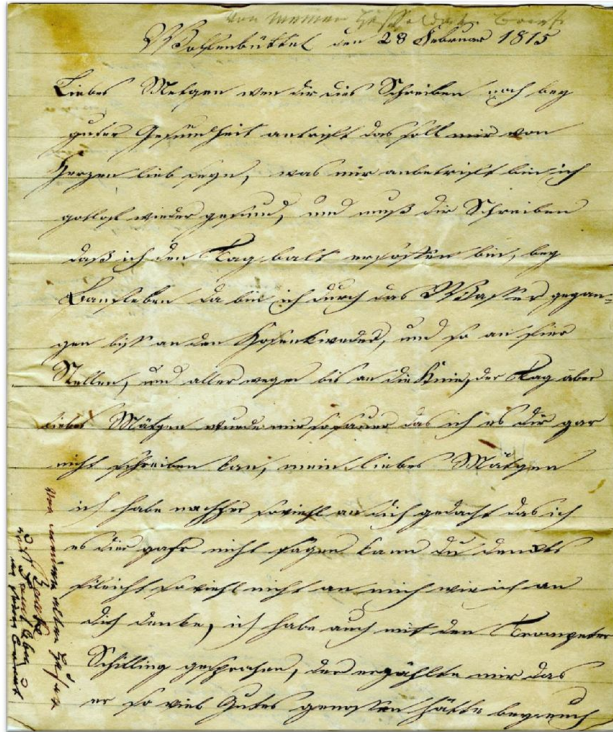 Wolfenbüttel den 28 Februar 1815
Liebes Metgen wen dir dies Schreiben noch bey
guter Gesundheit antrift das soll mir von
Herzen lieb seyn, was mir anbetrift bin ich
gotlob wieder gesund, und muß dir Schreiben
daß ich den Tag balt ersoffen bin, bey
da bin ich durch das Wasser gegan-
gen biss an den und so an vier
Stellen, und aller wegen bis an die Knie, der Tag aber
liebes Mätgen wurde mir so sauer das ich es dir gar
nicht schreiben kan, mein liebes Mätgen
ich habe nachher soviehl an dich gedacht das ich
es dir gahr nicht sagen kann du denkst
vileicht soviehl nicht an mich wie ich an
dich denke, ich habe auch mit den Trompeter
Schilling gesprochen, der erzählte mir das
er so viel Gutes genossen hätte bey euch